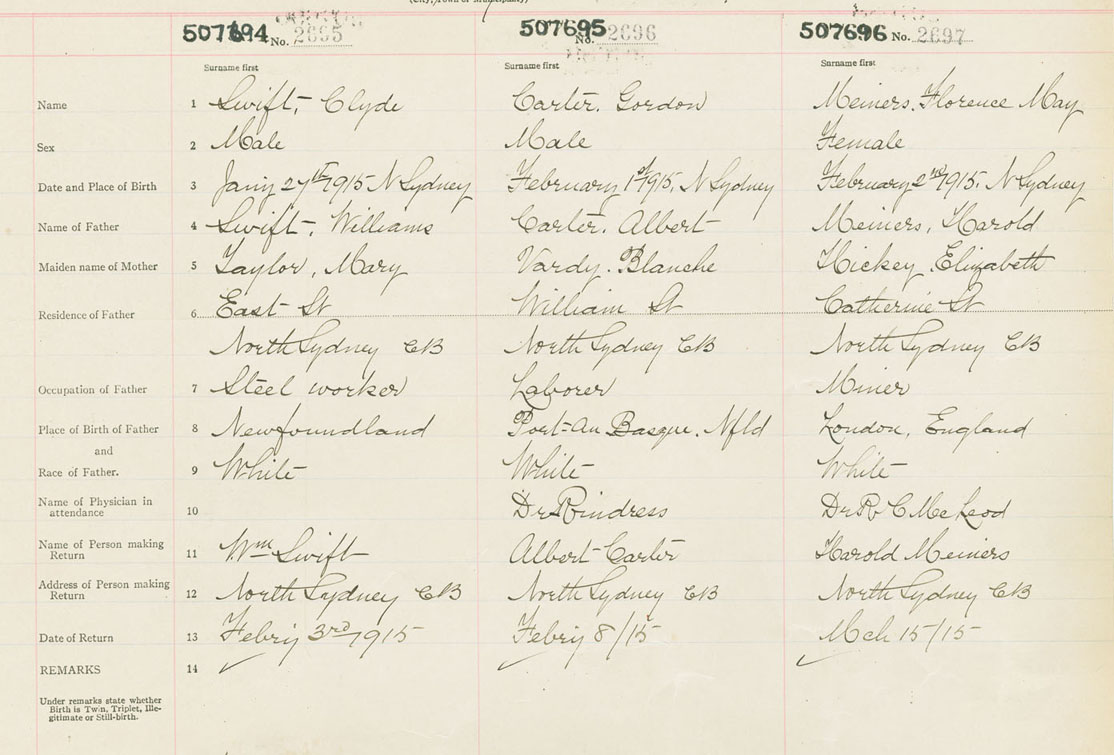 (City, Town or Municipality)
507694 No. 2695 507695 No. 2696 507696 No. 2697
Surname first Surname first Surname first
Name 1 Swift, Clyde Carter, Gordon Meiners, Florence May
Sex 2 Male Male Female
Date and Place of Birth 3 Jany 27th 1915 N Sydney February 1st 1915, N Sydney February 2nd 1915, N Sydney
Name of Father 4 Swift, Williams Carter, Albert Meiners, Harold
Maiden name of Mother 5 Taylor, Mary Vardy, Blanche Hickey, Elizabeth
Residence of Father 6 East St William St Catherine St
North Sydney CB North Sydney CB North Sydney CB
Occupation of Father 7 Steel worker Laborer Miner
Place of Birth of Father 8 Newfoundland Port-au Basque, Nfld London, England
and
Race of Father. 9 White White White
Name of Physician in
attendance 10 Dr Rindress Dr R C McLeod
Name of Person making
Return 11 Wm Swift Albert Carter Harold Meiners
Address of Person making
Return 12 North Sydney CB North Sydney CB North Sydney CB
Date of Return 13 Febry 3rd 1915 Febry 8/15 Mch 15/15
REMARKS 14
Under remarks state whether
Birth is Twin, Triplet, Ille-
gitimate or Still-birth.